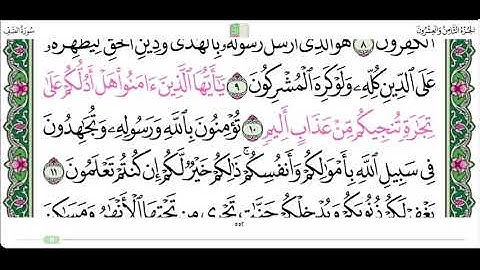 الجُزءُ الثَّامِنُ وَالعِشرُونَ
سُورَةُ الصَّفِّ
الْكَٰفِرُونَ ٨ هُوَ الَّذِي أَرْسَلَ رَسُولَهُۥ بِالْهُدَىٰ وَدِينِ الْحَقِّ لِيُظْهِرَهُۥ
عَلَى الدِّينِ كُلِّهِۦ وَلَوْ كَرِهَ الْمُشْرِكُونَ ٩ يَٰٓأَيُّهَا الَّذِينَ ءَامَنُوا۟ هَلْ أَدُلُّكُمْ عَلَىٰ
تِجَٰرَةٍ تُنجِيكُم مِّنْ عَذَابٍ أَلِيمٍ ١٠ تُؤْمِنُونَ بِاللَّهِ وَرَسُولِهِۦ وَتُجَٰهِدُونَ
فِي سَبِيلِ اللَّهِ بِأَمْوَٰلِكُمْ وَأَنفُسِكُمْ ۚ ذَٰلِكُمْ خَيْرٌ لَّكُمْ إِن كُنتُمْ تَعْلَمُونَ ١١
يَغْفِرْ لَكُمْ ذُنُوبَكُمْ وَيُدْخِلْكُمْ جَنَّٰتٍ تَجْرِي مِن تَحْتِهَا الْأَنْهَٰرُ وَمَسَٰكِنَ
٥٥٢